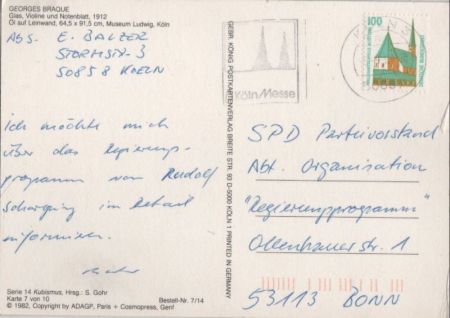 GEORGES BRAQUE
Glas, Violine und Notenblatt, 1912
Öl auf Leinwand, 64,5 x 91,5 cm, Museum Ludwig, Köln
ABS. E. BALZER
STORMSTR. 3
50858 KOELN
Ich möchte mich
über das Regierungs-
programm von Rudolf
Scharping im Detail
informieren.
Serie 14 Kubismus, Hrsg.: S. Gohr
Karte 7 von 10
Bestell-Nr. 7/14
© 1982, Copyright by ADAGP, Paris + Cosmopress, Genf
GEBR. KÖNIG POSTKARTENVERLAG BREITE STR. 93 D-5000 KÖLN 1 PRINTED IN GERMANY
KölnMesse
100
SPD Parteivorstand
Abt. Organisation
"Regierungsprogramm"
Ollenhauerstr. 1
53113 BONN